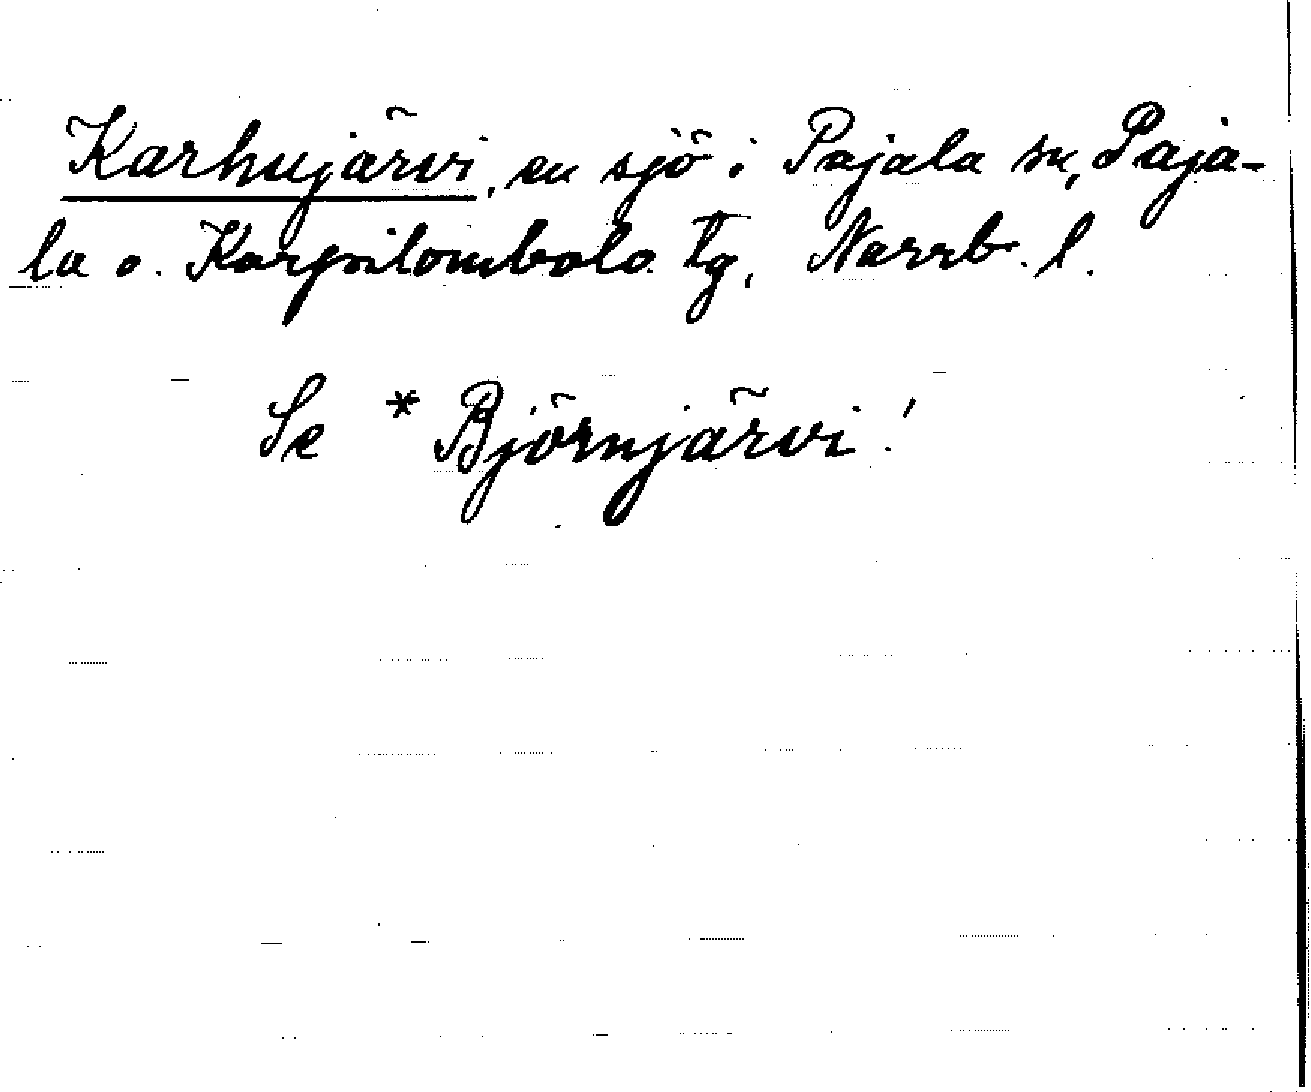 Karhujärvi, en sjö i Pajala sn, Paja-
la o. Korpilombolo tg, Norrb. l.
Se * Björnjärvi!